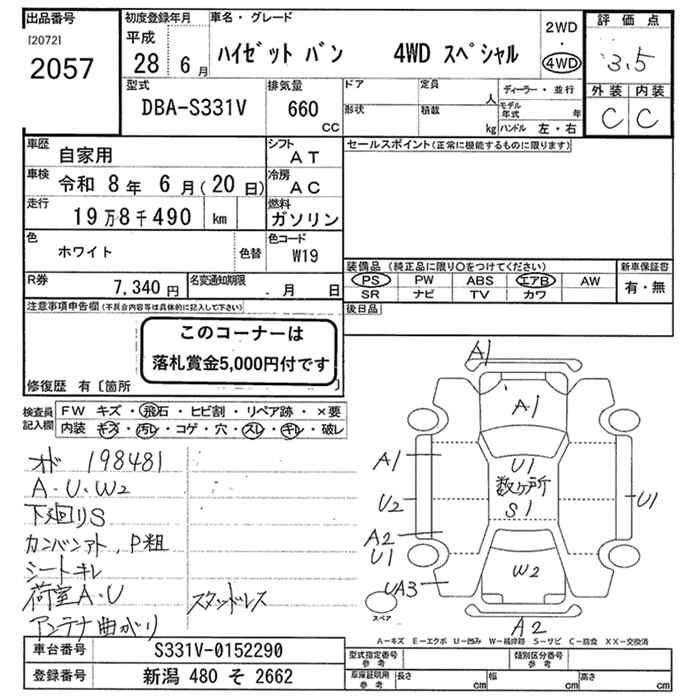 出品番号
[2072]
2057
初度登録年月
平成
28 6月
車名・グレード
ハイゼット バン 4WD スペシャル
2WD
・
4WD
評価点
3.5
外装 内装
C C
型式
DBA-S331V
排気量
660
CC
ドア
形状
定員
人
積載
kg
ディーラー・並行
モデル年式 年
ハンドル 左・右
車歴
自家用
シフト
AT
車検
令和 8年 6月(20日)
冷房
AC
走行
19万8千490 km
燃料
ガソリン
色
ホワイト
色替
色コード
W19
R券
7,340円
名変通知期限
. 月 日
セールスポイント(正常に機能するものに限ります)
装備品(純正品に限り○をつけてください)
PS PW ABS エアB AW
SR ナビ TV カワ
新車保証書
有・無
後日品
注意事項申告欄(不具合内容等は具体的に記入して下さい)
このコーナーは
落札賞金5,000円付です
修復歴 有〔箇所 〕
検査員記入欄
FW キズ・飛石・ヒビ割・リペア跡・×要
内装 キズ・汚レ・コゲ・穴・スレ・キレ・破レ
オド 198481
A・U・W2
下廻りS
カンバンアト、P粗
シートキレ
荷室A・U
スタッドレス
アンテナ曲がり
A1
A1
A1
U1
数ヶ所
S1
U2
U1
A2
U1
W2
UA3
スペア
A2
A-キズ E-エクボ U-凹み W-補修跡 S-サビ C-腐食 XX-交換済
車台番号
S331V-0152290
登録番号
新潟 480 そ 2662
型式指定番号
参考
類別区分番号
参考
車庫証明用
参考
長さ cm
幅 cm
高さ cm